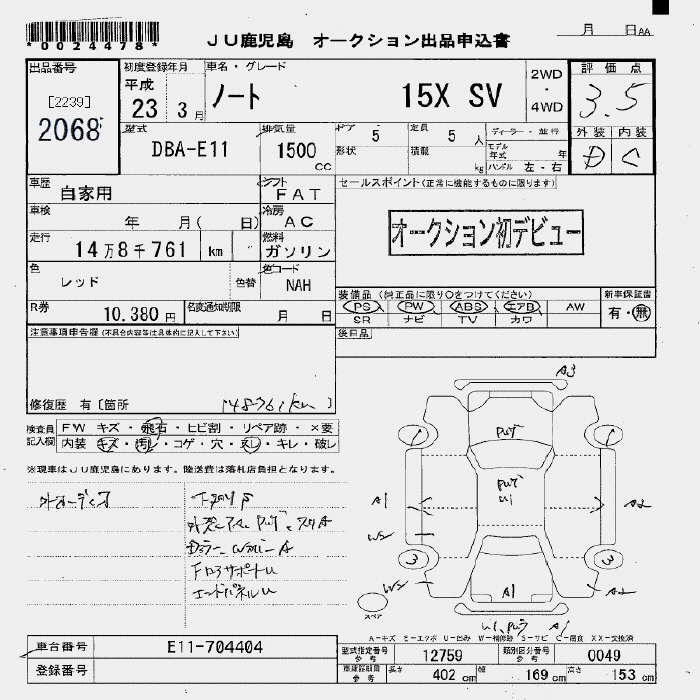 *0024478*
JU鹿児島 オークション出品申込書
月 日AA
出品番号
[2239]
2068
初度登録年月
平成
23 3 月
車名・グレード
ノート 15X SV
2WD
・
4WD
評価点
3.5
外装 内装
D C
型式
DBA-E11
排気量
1500
cc
ドア 5
形状
定員 5 人
積載 kg
ディーラー・並行
モデル年式 年
ハンドル 左・右
車歴
自家用
シフト
FAT
車検
年 月( 日)
冷房
AC
走行
14万8千761 km
燃料
ガソリン
色
レッド
色替
色コード
NAH
R券
10.380円
名変通知期限
月 日
セールスポイント(正常に機能するものに限ります)
オークション初デビュー
装備品(純正品に限り○をつけてください)
PS PW ABS エアB AW
SR ナビ TV カワ
新車保証書
有・無
後日品
注意事項申告欄(不具合内容等は具体的に記入して下さい)
修復歴 有〔箇所 148761km 〕
検査員記入欄
FW キズ・飛石・ヒビ割・リペア跡・×要
内装・キズ・汚れ・コゲ・穴・スレ・キレ・破レ
※現車はJU鹿児島にあります。陸送費は落札店負担となります。
外オーディオ
F
A
コアサポートU
エンドパネルU
A3
A1
A2
W5
W5
A1
A1
スペア
A-キズ E-エクボ U-凹み W-補修跡 S-サビ C-腐食 XX-交換済
車台番号 E11-704404
登録番号
型式指定番号参考 12759
類別区分番号参考 0049
車検証記載参考 長さ 402 cm 幅 169 cm 高さ 153 cm